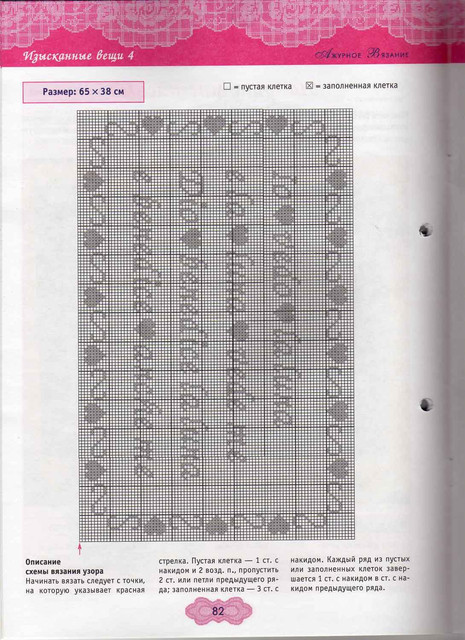 Изысканные вещи 4
Ажурное Вязание
Размер: 65 × 38 см
☐ = пустая клетка ☒ = заполненная клетка
Описание
схемы вязания узора
Начинать вязать следует с точки,
на которую указывает красная
стрелка. Пустая клетка — 1 ст. с
накидом и 2 возд. п., пропустить
2 ст. или петли предыдущего ря-
да; заполненная клетка — 3 ст. с
накидом. Каждый ряд из пустых
или заполненных клеток завер-
шается 1 ст. с накидом в ст. с на-
кидом предыдущего ряда.
82